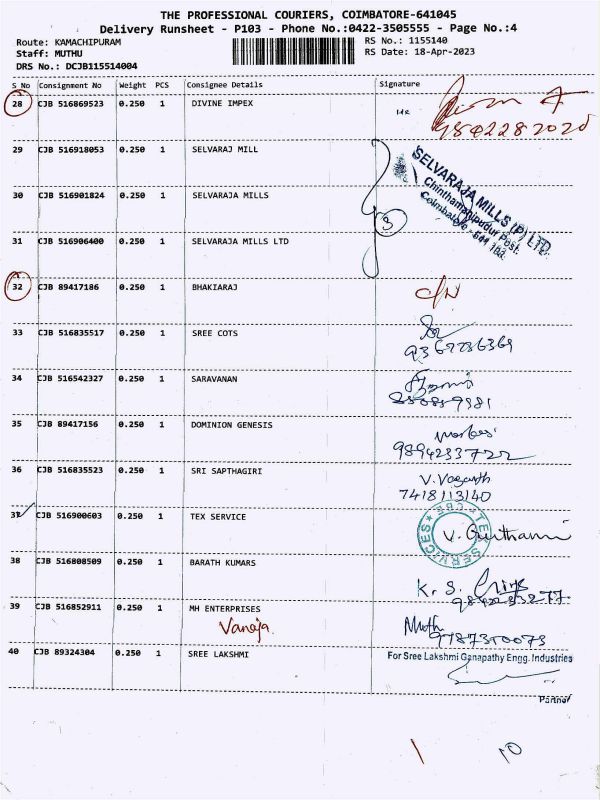 THE PROFESSIONAL COURIERS, COIMBATORE-641045
Delivery Runsheet - P103 - Phone No.:0422-3505555 - Page No.:4
Route: KAMACHIPURAM
RS No.: 1155140
Staff: MUTHU
RS Date: 18-Apr-2023
DRS No.: DCJB115514004
S No Consignment No Weight PCS Consignee Details Signature
28 CJB 516869523 0.250 1 DIVINE IMPEX
9842282020
29 CJB 516918053 0.250 1 SELVARAJ MILL
SELVARAJA MILLS (P) LTD
Chinthamanipudur Post,
Coimbatore - 641 103.
30 CJB 516901824 0.250 1 SELVARAJA MILLS
3
31 CJB 516906400 0.250 1 SELVARAJA MILLS LTD
32 CJB 89417186 0.250 1 BHAKIARAJ
C/N
33 CJB 516835517 0.250 1 SREE COTS
9367236369
34 CJB 516542327 0.250 1 SARAVANAN
35 CJB 89417156 0.250 1 DOMINION GENESIS
9894233722
36 CJB 516835523 0.250 1 SRI SAPTHAGIRI
V. Vasanth
7418113140
37 CJB 516900603 0.250 1 TEX SERVICE
TEX SERVICES * CBE *
38 CJB 516808509 0.250 1 BARATH KUMARS
39 CJB 516852911 0.250 1 MH ENTERPRISES
Vanaja
Muth
9787350073
40 CJB 89324304 0.250 1 SREE LAKSHMI
For Sree Lakshmi Ganapathy Engg. Industries
Partner